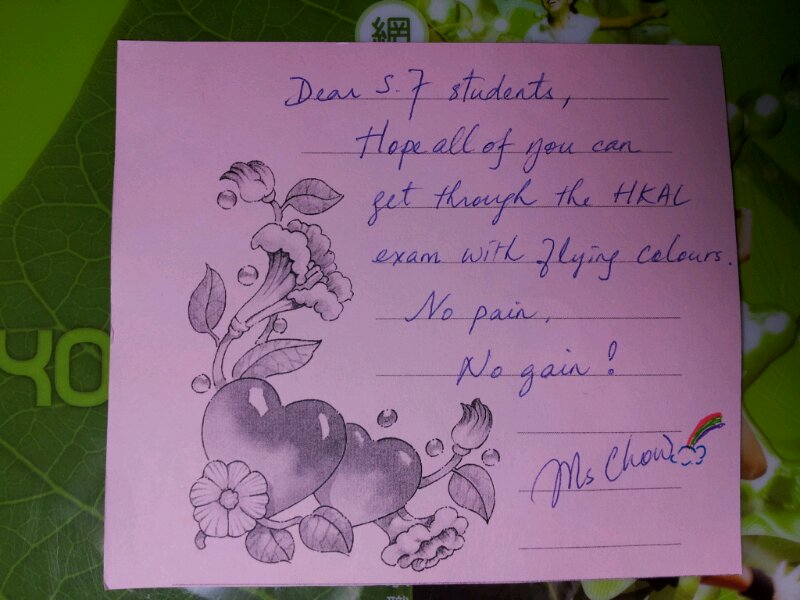 網
Dear S.7 students,
Hope all of you can
get through the HKAL
exam with flying colours.
No pain,
No gain!
Ms Chow
YO